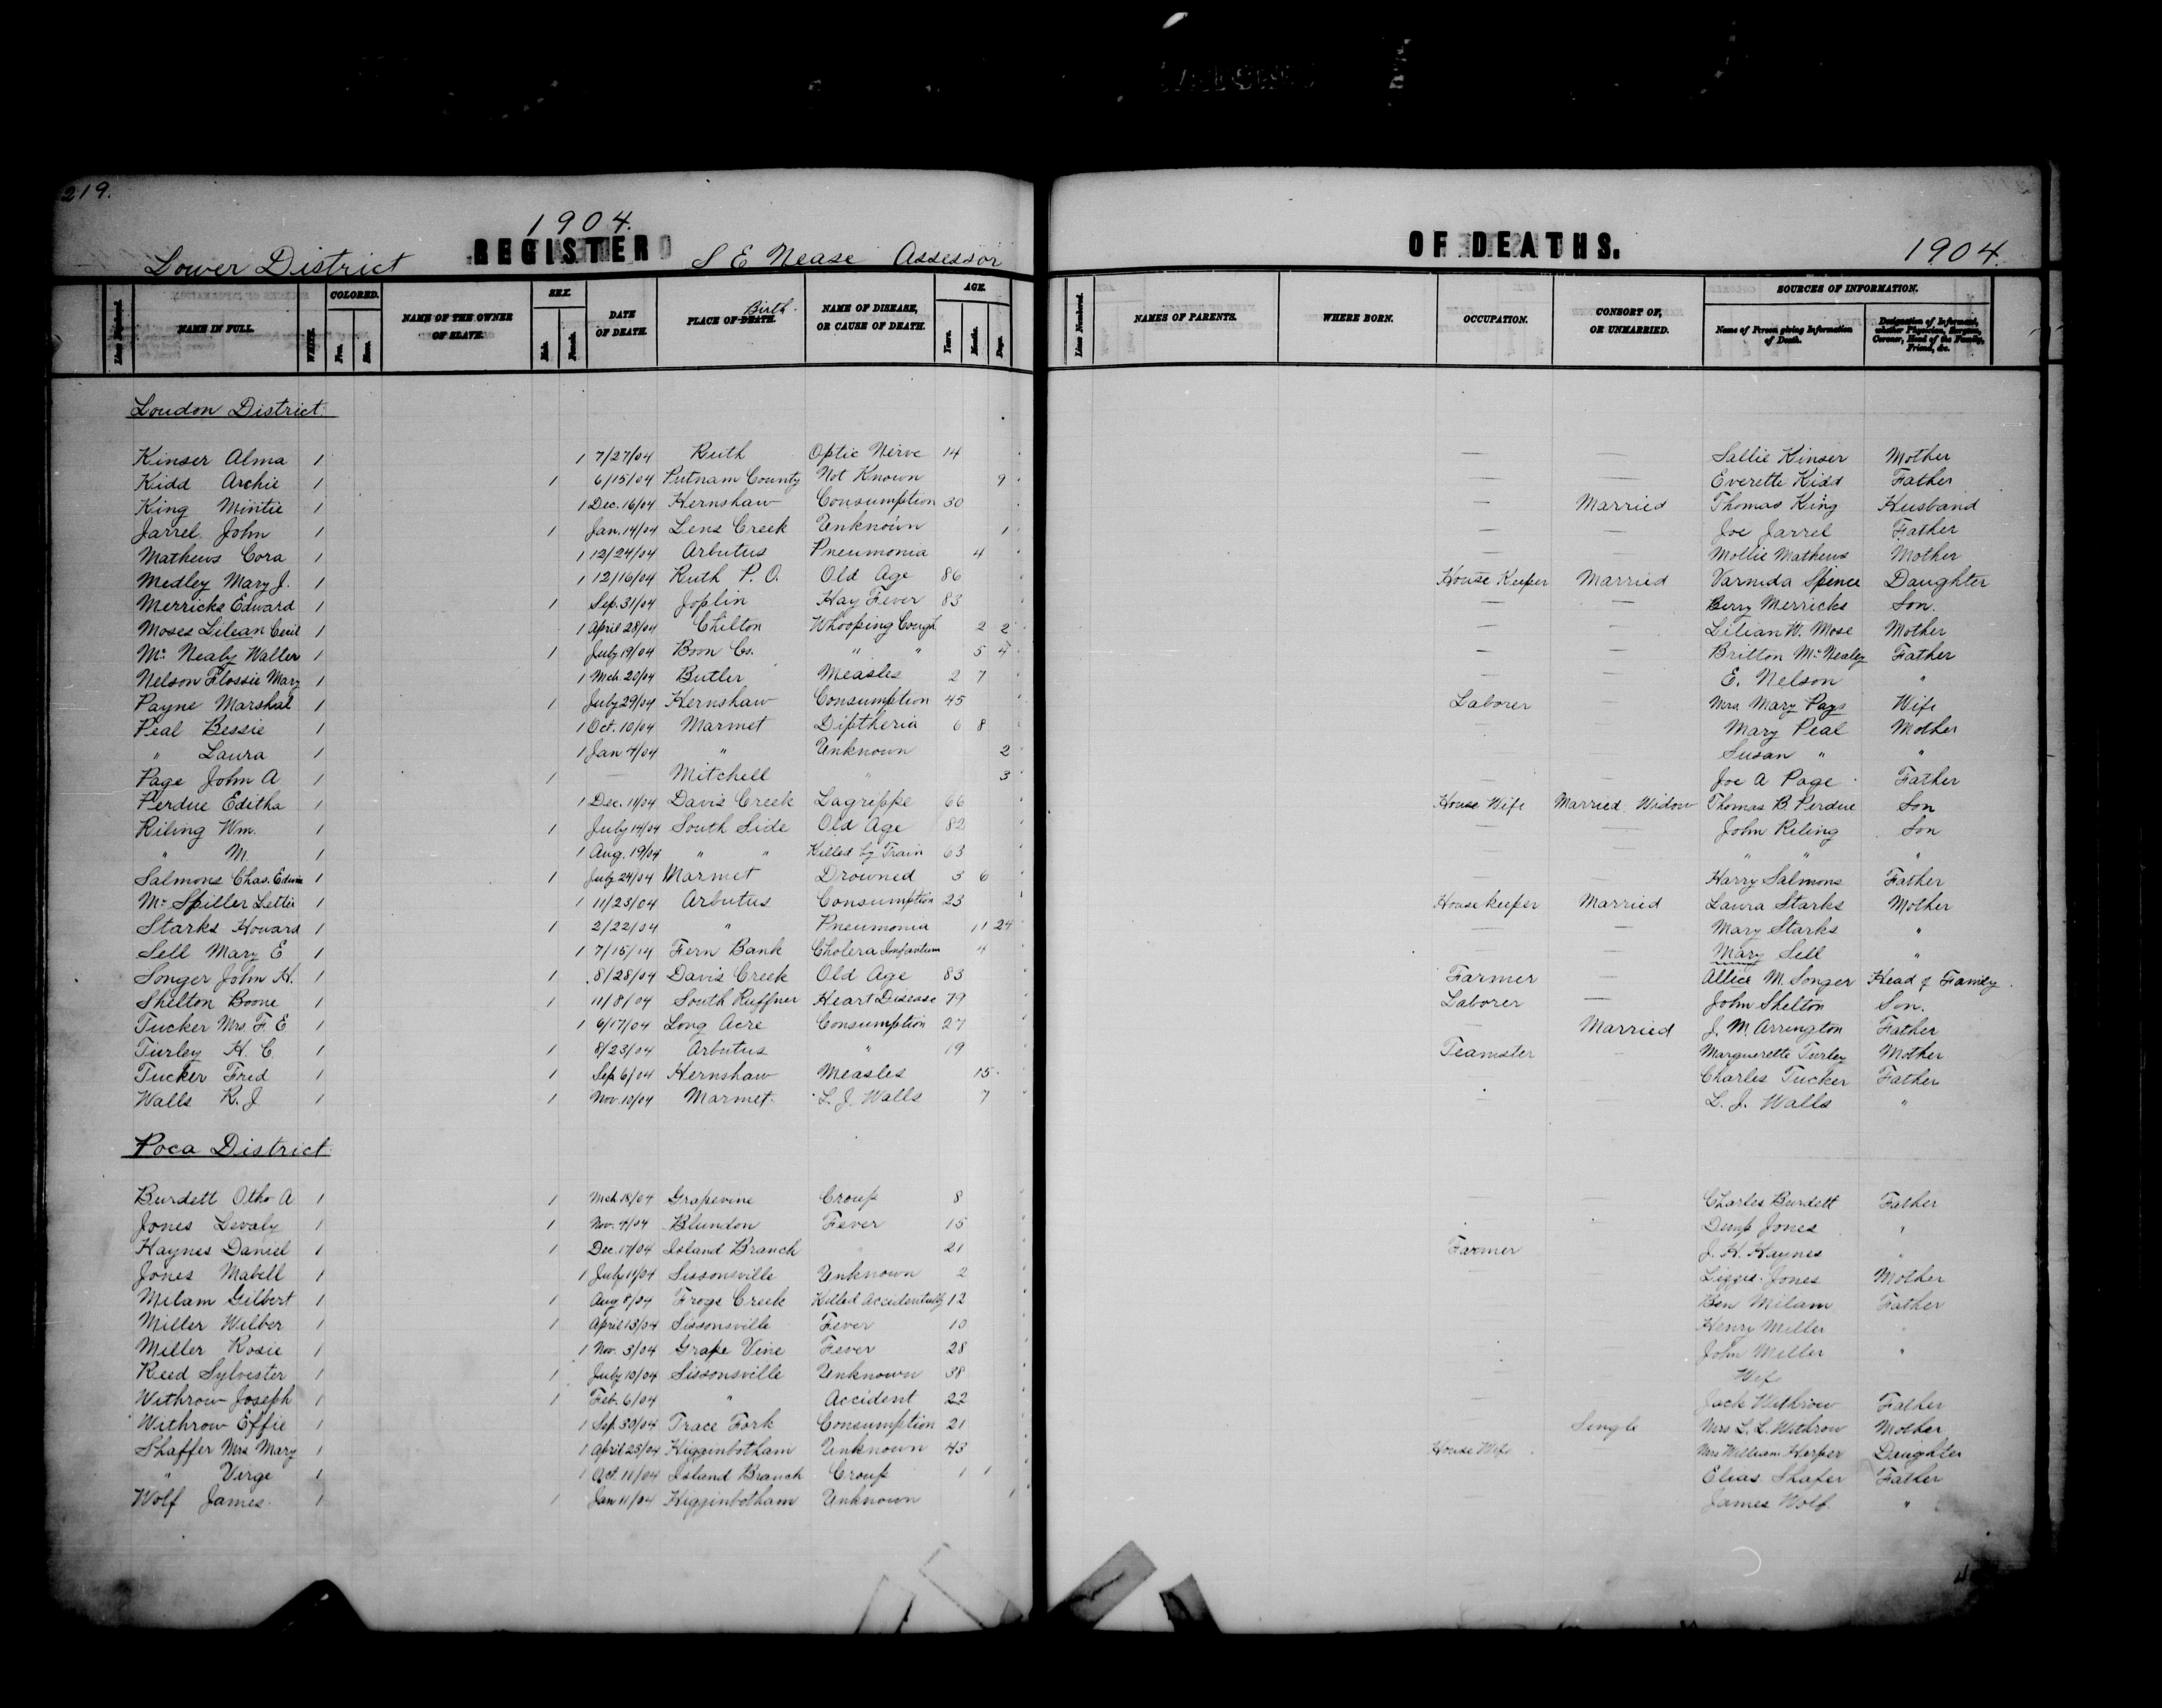 219.
1904.
REGISTER OF DEATHS. 1904.
Lower District S E Nease Assessor
Line Numbered. NAME IN FULL. WHITE. COLORED. Free. Slave. NAME OF THE OWNER OF SLAVE. SEX. Male. Female. DATE OF DEATH. PLACE OF DEATH. Birth. NAME OF DISEASE, OR CAUSE OF DEATH. AGE. Years. Months. Days. Line Numbered. NAMES OF PARENTS. WHERE BORN. OCCUPATION. CONSORT OF, OR UNMARRIED. SOURCES OF INFORMATION. Name of Person giving Information of Death. Designation of Informant, whether Physician, Surgeon, Coroner, Head of the Family, Friend, &c.
Loudon District
Kinser Alma 1 1 7/27/04 Ruth Optic Nerve 14 — — Sallie Kinser Mother
Kidd Archie 1 1 6/15/04 Putnam County Not Known 9 — — Everette Kidd Father
King Mintie 1 1 Dec. 16/04 Hernshaw Consumption 30 — Married Thomas King Husband
Jarrel John 1 1 Jan. 14/04 Lens Creek Unknown 1 — — Joe Jarrel Father
Mathews Cora 1 1 12/24/04 Arbutus Pneumonia 4 — — Mollie Mathews Mother
Medley Mary J. 1 1 12/16/04 Ruth P. O. Old Age 86 House Keeper Married Varnida Spence Daughter
Merricks Edward 1 1 Sep. 31/04 Joplin Hay Fever 83 — — Berry Merricks Son.
Moses Lilean Cecil 1 1 April 28/04 Chilton Whooping Cough 2 2 — — Lilian W. Mose Mother
Mc Nealy Walter 1 1 July 19/04 Boon Co. " " 5 4 — — Britton McNealey Father
Nelson Flossie Mary 1 1 Mch. 20/04 Butler Measles 2 7 — — E. Nelson "
Payne Marshal 1 1 July 29/04 Hernshaw Consumption 45 Laborer — Mrs. Mary Pays Wife
Peal Bessie 1 1 Oct. 10/04 Marmet Diptheria 6 8 — — Mary Peal Mother
" Laura 1 1 Jan 7/04 " Unknown 2 Susan " "
Page John A 1 1 — Mitchell " 3 — — Joe A Page Father
Perdue Editha 1 1 Dec. 11/04 Davis Creek Lagrippe 66 House Wife Married Widow Thomas B. Perdue Son
Riling Wm. 1 1 July 14/04 South Side Old Age 82 — — John Riling Son
" M. 1 1 Aug. 19/04 " " Killed by Train 63 — — " " "
Salmons Chas. Edwin 1 1 July 24/04 Marmet Drowned 3 6 — — Harry Salmons Father
Mc Spiller Lettie 1 1 11/23/04 Arbutus Consumption 23 House keeper Married Laura Starks Mother
Starks Howard 1 1 2/22/04 " Pneumonia 11 24 — — Mary Starks "
Sell Mary E 1 1 7/15/14 Fern Bank Cholera Infantum 4 — — Mary Sell "
Songer John H. 1 1 8/28/04 Davis Creek Old Age 83 Farmer — Allice M. Songer Head of Family
Shelton Boone 1 1 11/8/04 South Ruffner Heart Disease 79 Laborer — John Shelton Son.
Tucker Mrs. F. E 1 1 6/17/04 Long Acre Consumption 27 — Married J. M. Arrington Father
Turley H. C. 1 1 8/23/04 Arbutus " 19 Teamster - Marguerette Turley Mother
Tucker Fred 1 1 Sep 6/04 Hernshaw Measles 15 Charles Tucker Father
Walls R. J. 1 1 Nov. 10/04 Marmet. L. J. Walls 7 — — L. J. Walls "
Poca District
Burdett Otho A 1 1 Mch 18/04 Grapevine Croup 8 — — Charles Burdett Father
Jones Levaly 1 1 Nov. 4/04 Blundon Fever 15 Dump Jones "
Haynes Daniel 1 1 Dec. 17/04 Island Branch " 21 Farmer J. H. Haynes "
Jones Mabell 1 1 July 11/04 Sissonsville Unknown 2 Lizzie Jones Mother
Milam Gilbert 1 1 Aug 8/04 Frogs Creek Killed Accidentally 12 Ben Milam Father
Miller Wilber 1 1 April 13/04 Sissonsville Fever 10 Henry Miller "
Miller Rosie 1 1 Nov. 3/04 Grape Vine Fever 28 John Miller "
Reed Sylvester 1 1 July 10/04 Sissonsville Unknown 38 Wife
Withrow Joseph 1 1 Feb. 6/04 " Accident 22 — Jack Withrow Father
Withrow Effie 1 1 Sep. 30/04 Trace Fork Consumption 21 Single Mrs L. L. Withrow Mother
Shaffer Mrs Mary 1 1 April 25/04 Higginbotham Unknown 43 House Wife Mrs William Harper Daughter
" Virge 1 1 Oct. 11/04 Island Branch Croup 1 1 Elias Shafer Father
Wolf James 1 1 Jan 11/04 Higginbotham Unknown 1 James Wolf "